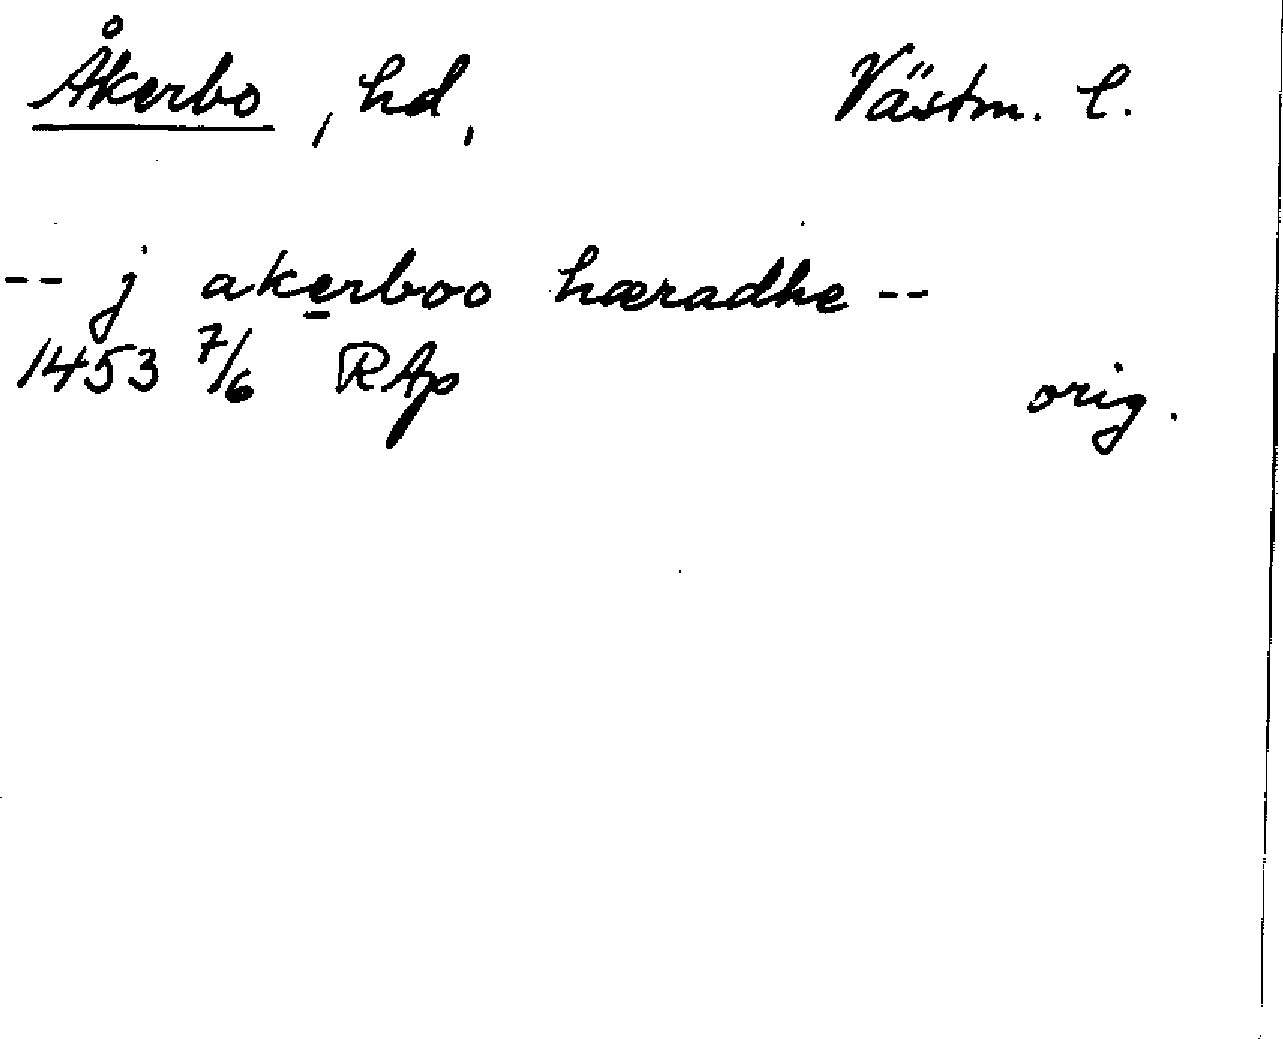 Åkerbo, hd, Västm. l.
-- j akerboo hæradhe --
1453 7/6 RAp orig.